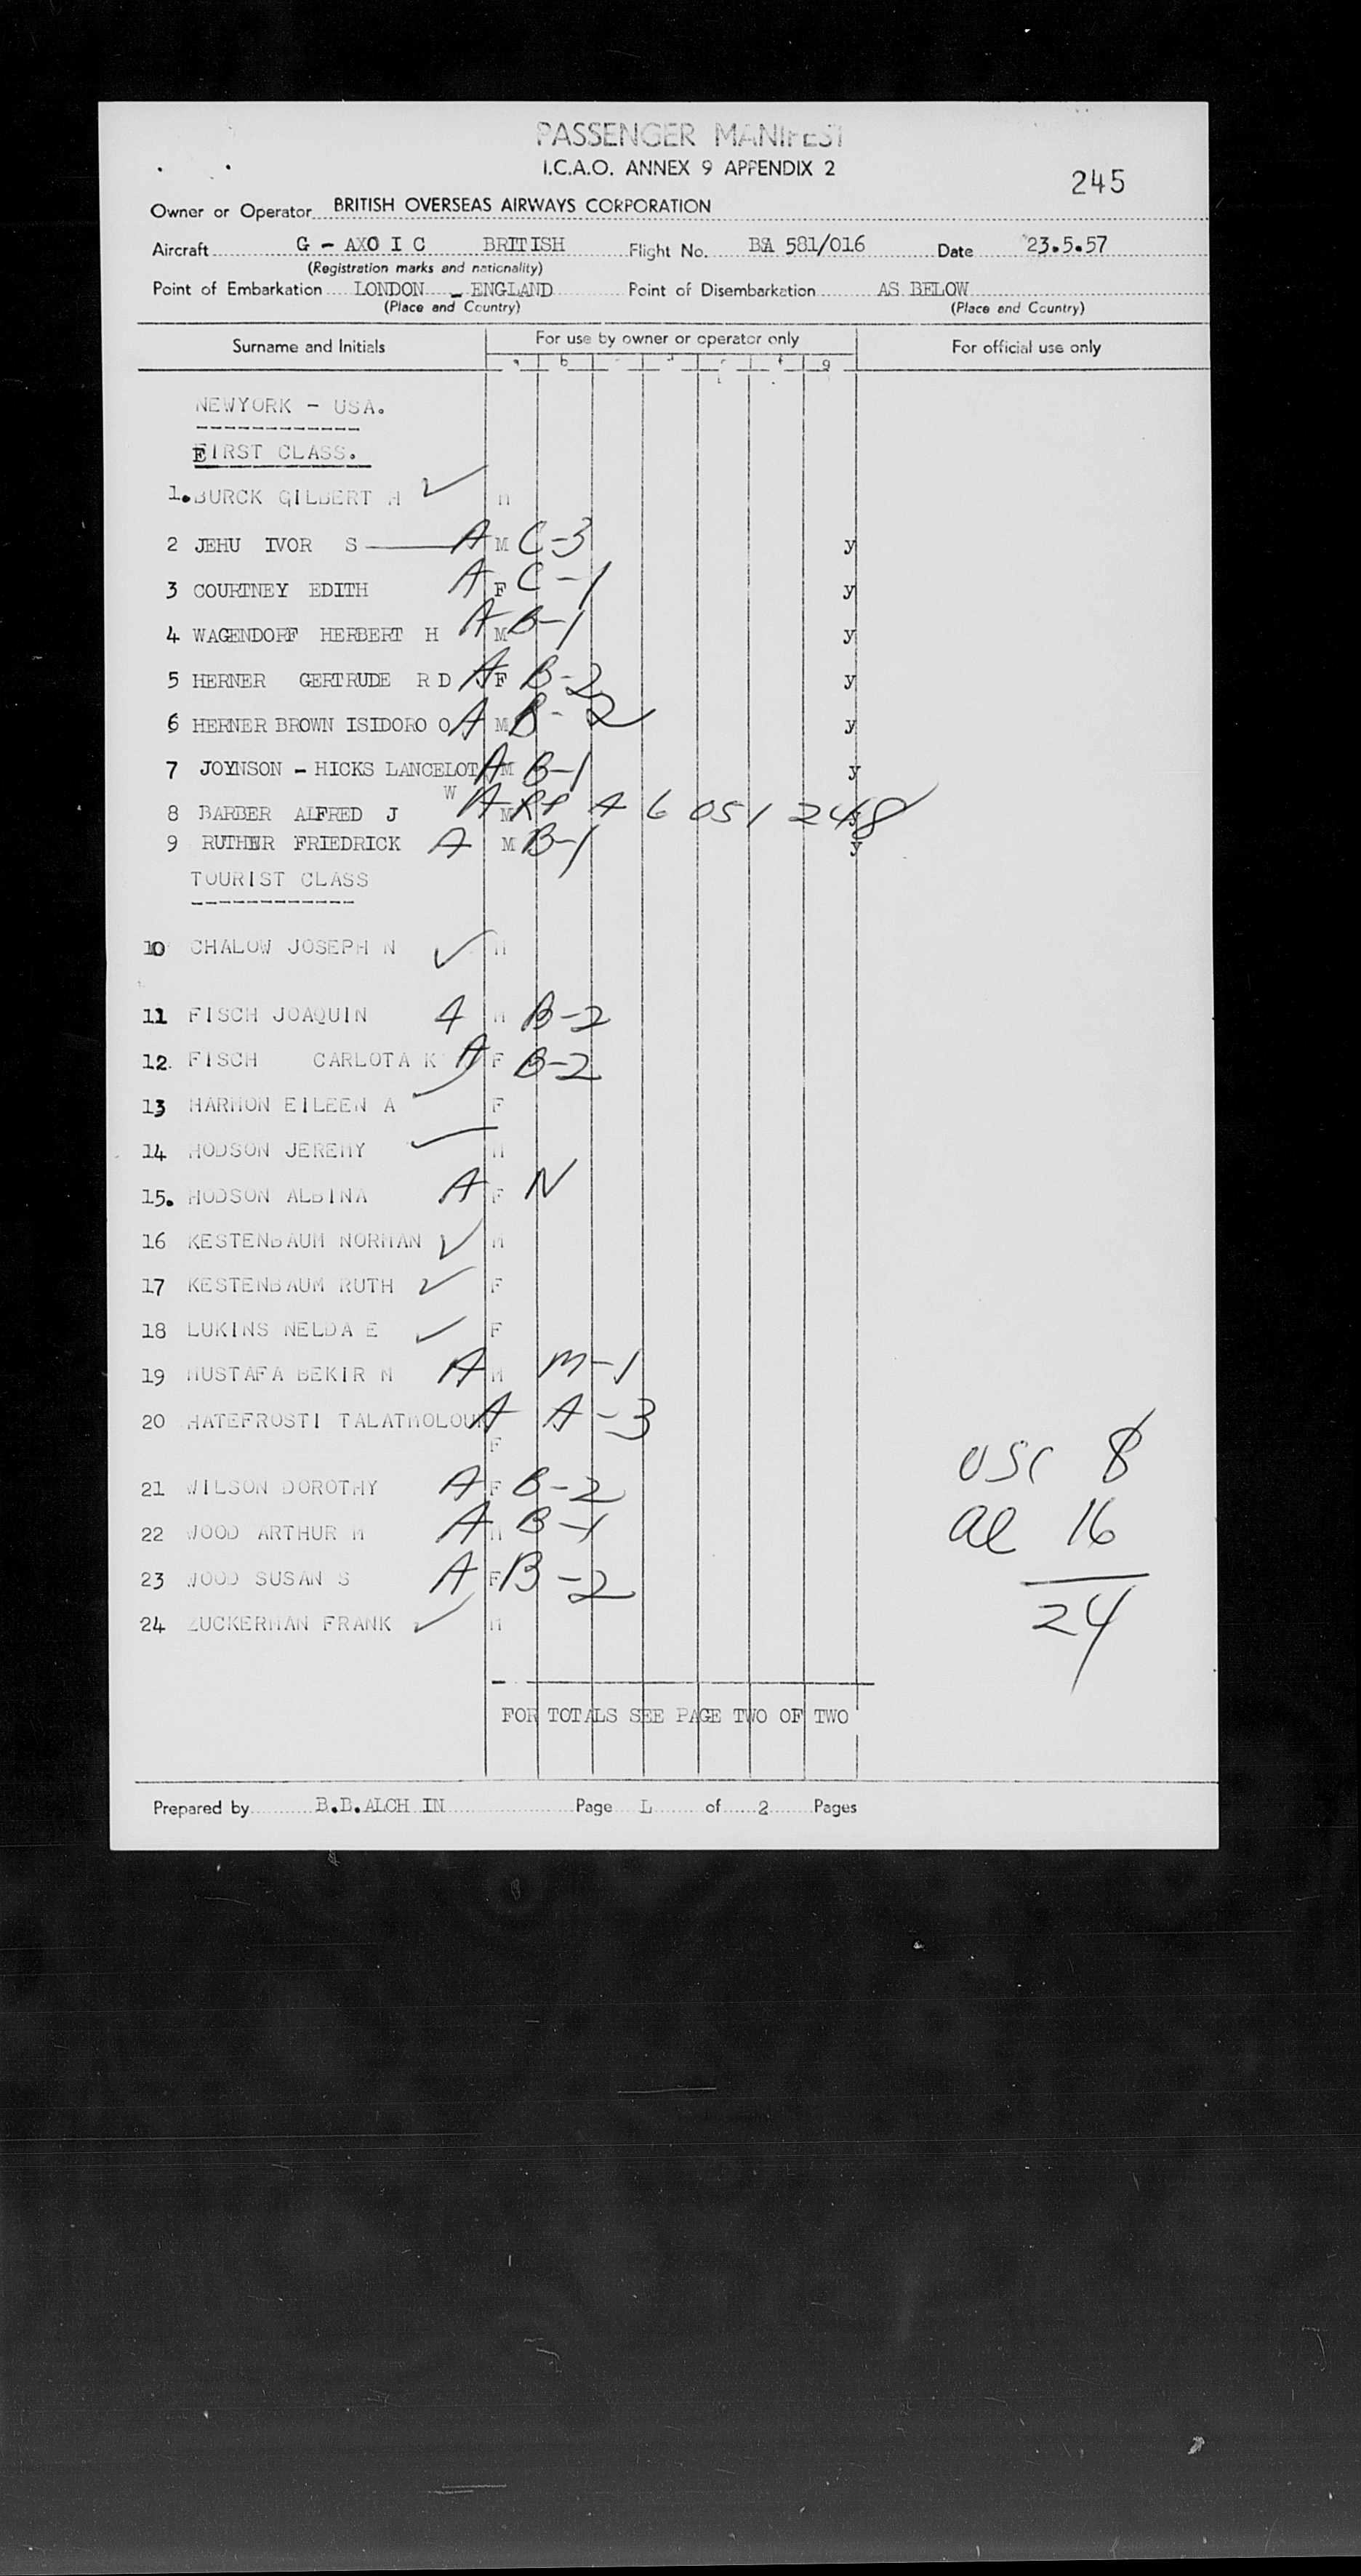 PASSENGER MANIFEST
I.C.A.O. ANNEX 9 APPENDIX 2
245
Owner or Operator BRITISH OVERSEAS AIRWAYS CORPORATION
Aircraft G - AXO I C BRITISH Flight No. BA 581/016 Date 23.5.57
(Registration marks and nationality)
Point of Embarkation LONDON - ENGLAND Point of Disembarkation AS BELOW
(Place and Country) (Place and Country)
Surname and Initials For use by owner or operator only For official use only
a b c d e f g
NEWYORK - USA.
FIRST CLASS.
1. BURCK GILBERT H ✓ M
2 JEHU IVOR S A M C-3 y
3 COURTNEY EDITH A F C-1 y
4 WAGENDORF HERBERT H A M B-1 y
5 HERNER GERTRUDE R D A F B-2 y
6 HERNER BROWN ISIDORO O A M B-2 y
7 JOYNSON - HICKS LANCELOT A M B-1 y
W
8 BARBER ALFRED J A M RP A 6 051 248 y
9 RUTHER FRIEDRICK A M B-1 y
TOURIST CLASS
10 CHALOW JOSEPH N ✓ M
11 FISCH JOAQUIN A M B-2
12. FISCH CARLOTA K A F B-2
13 HARMON EILEEN A ✓ F
14 HODSON JEREMY ✓ M
15. HODSON ALBINA A F N
16 KESTENBAUM NORMAN ✓ M
17 KESTENBAUM RUTH ✓ F
18 LUKINS NELDA E ✓ F
19 MUSTAFA BEKIR M A M M-1
20 HATEFROSTI TALATMOLOUK A A-3
F
21 WILSON DOROTHY A F B-2
22 WOOD ARTHUR M A M B-1
23 WOOD SUSAN S A F B-2
24 ZUCKERMAN FRANK ✓ M
USC 8
al 16
24
FOR TOTALS SEE PAGE TWO OF TWO
Prepared by B.B.ALCH IN Page L of 2 Pages